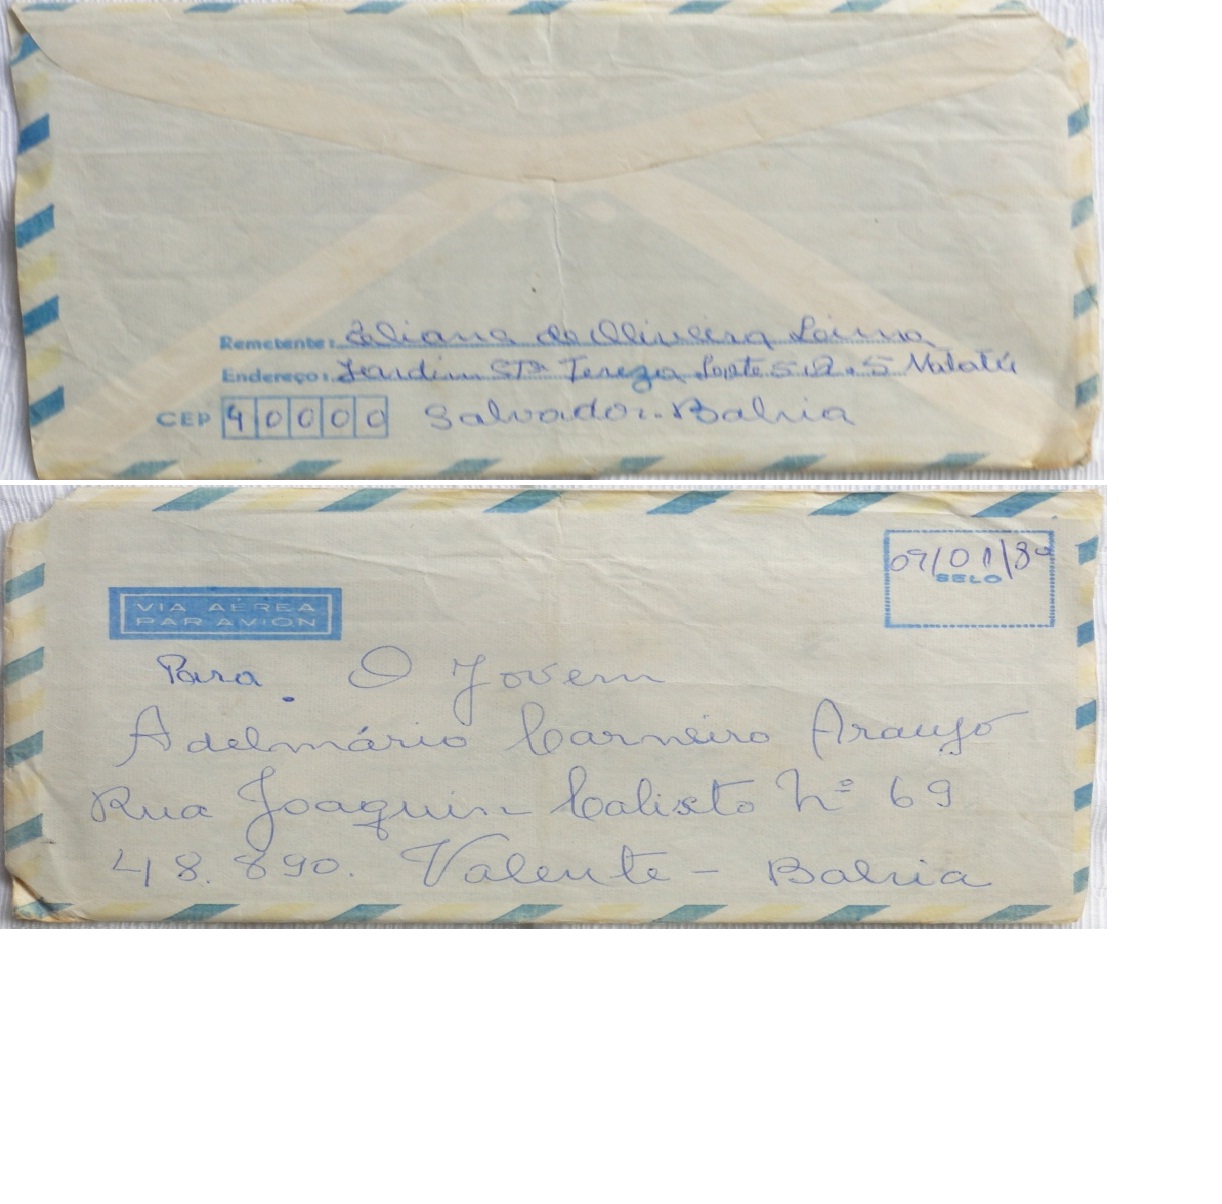 Remetente: Eliane de Oliveira Lima
Endereço: Jardim Stª Tereza Lote 5 Q. 5 Matatú
CEP 40000 Salvador - Bahia
09/01/80
SELO
VIA AÉREA
PAR AVION
Para O Jovem
Adelmário Carneiro Araujo
Rua Joaquim Calixto Nº 69
48.890. Valente - Bahia